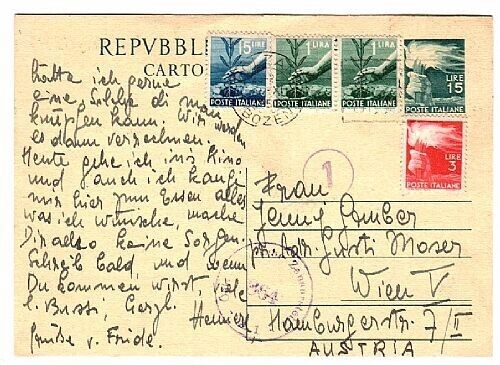 REPVBBLI
CARTO
15 LIRE
POSTE ITALIANE
1 LIRA
POSTE ITALIANE
1 LIRA
POSTE ITALIANE
LIRE
15
POSTE ITALIANE
LIRE
3
POSTE ITALIANE
BOZEN
1
Hätte ich gerne
eine Solche die man
knüpfen kann. Wir werden
es dann verrechnen.
Heute gehe ich ins Kino
und auch ich kaufe
mir hier zum Essen alles
was ich wünsche, mache
Dir also keine Sorgen.
Schreib bald, und wenn
Du kommen wirst, viele
l. Bussi,
Grüße v. Friedl.
Frau
Jenny Gruber
pr. Adr. Gusti Moser
Wien V
Hamburgerstr. 7/II
AUSTRIA